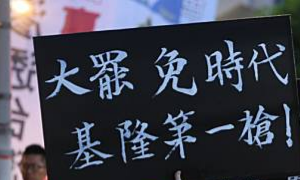 大罷免時代
基隆第一槍!